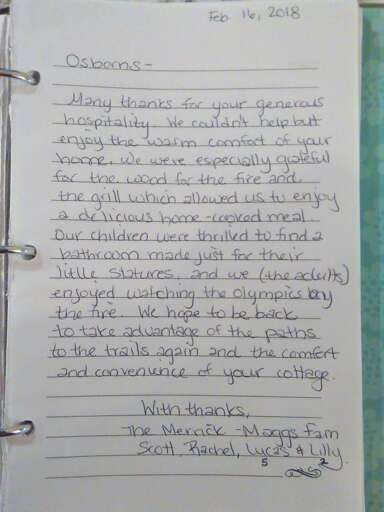 Feb. 16, 2018
Osborns-
Many thanks for your generous
hospitality. We couldn't help but
enjoy the warm comfort of your
home. We were especially grateful
for the wood for the fire and
the grill which allowed us to enjoy
a delicious home-cooked meal.
Our children were thrilled to find a
bathroom made just for their
little statures, and we (the adults)
enjoyed watching the Olympics by
the fire. We hope to be back
to take advantage of the paths
to the trails again and the comfort
and convenience of your cottage.
With thanks,
The Merrick-Maggs Fam
Scott, Rachel, Lucas & Lilly
5 2